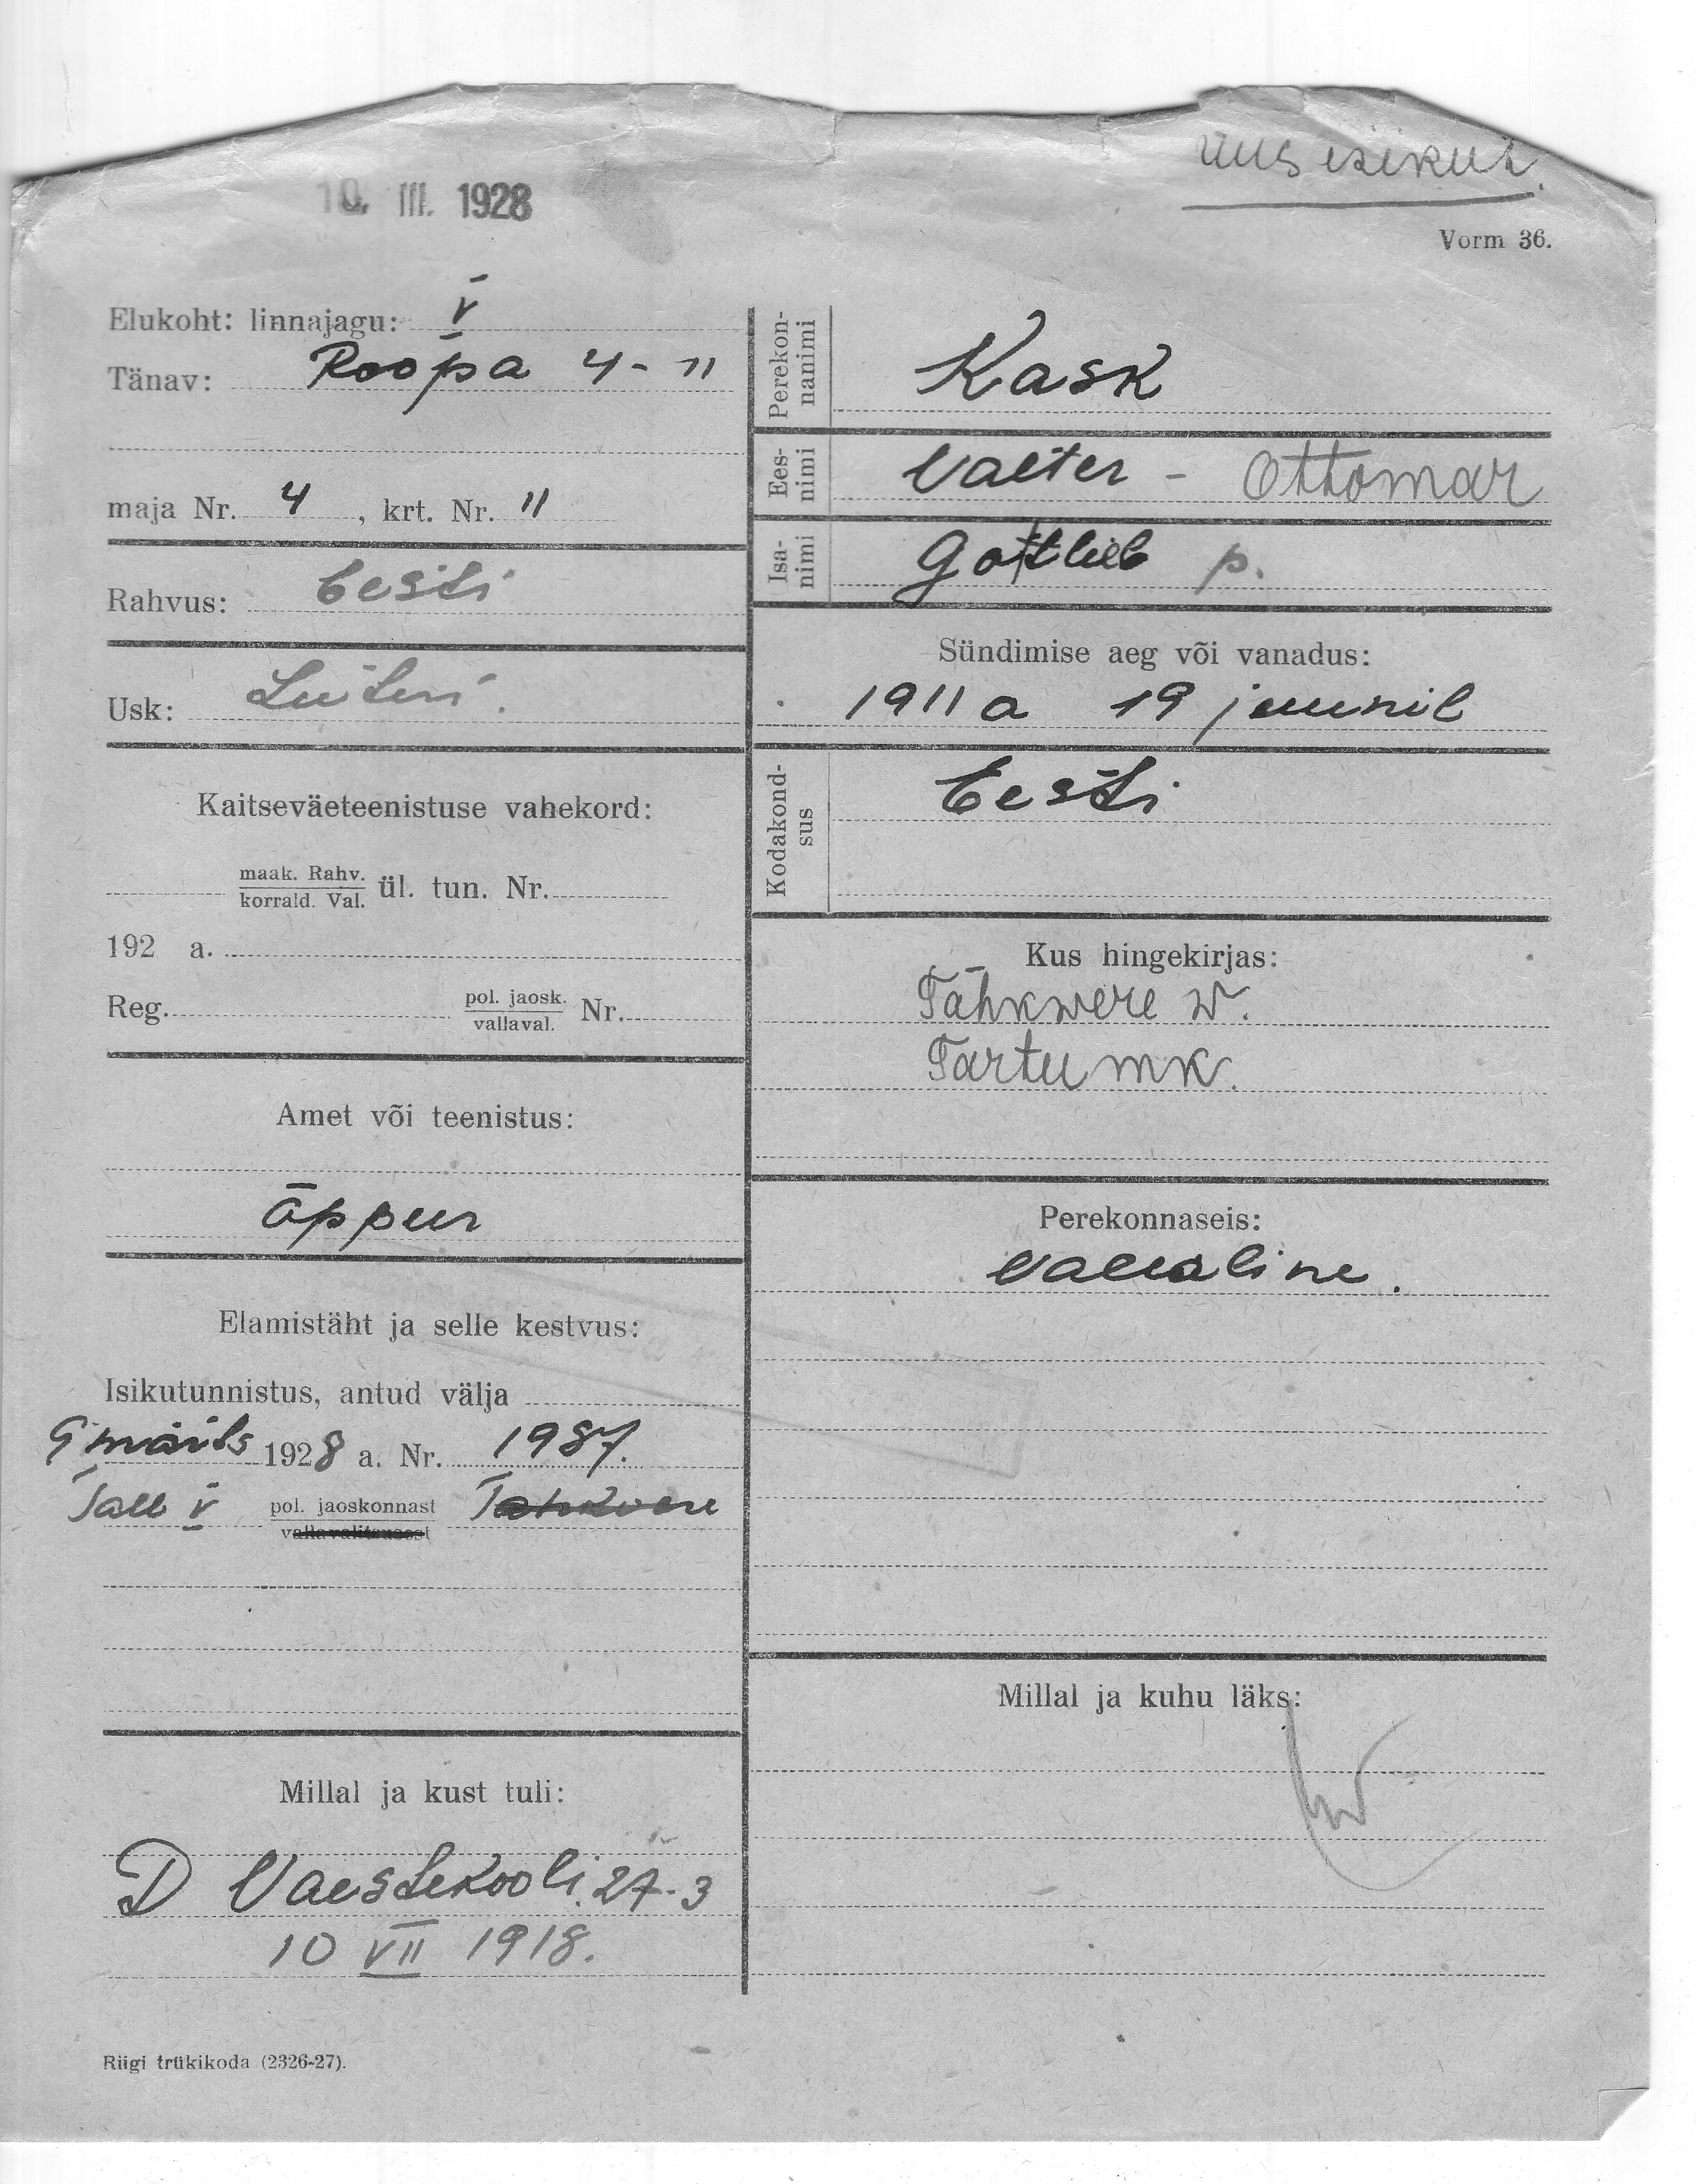 uus isikut.
10. III. 1928
Vorm 36.
Elukoht: linnajagu: V
Tänav: Roopa 4 - 11
maja Nr. 4 , krt. Nr. 11
Rahvus: Eesti
Usk: Luteri.
Kaitseväeteenistuse vahekord:
maak. Rahv.
korrald. Val. ül. tun. Nr.
192 a.
Reg. pol. jaosk.
vallaval. Nr.
Amet või teenistus:
õppur
Elamistäht ja selle kestvus:
Isikutunnistus, antud välja
9 märts 1928 a. Nr. 1987.
Tall V pol. jaoskonnast Tähkvere
vallavalitsusest
Millal ja kust tuli:
D Vaestekooli 27-3
10 VII 1918.
Riigi trükikoda (2326-27).
Perekon-
nanimi Kask
Ees-
nimi Valter - Ottomar
Isa-
nimi Gottlieb p.
Sündimise aeg või vanadus:
1911 a 19 juunil
Kodakond-
sus Eesti
Kus hingekirjas:
Tähkwere w.
Tartu mk.
Perekonnaseis:
Vallaline.
Millal ja kuhu läks: